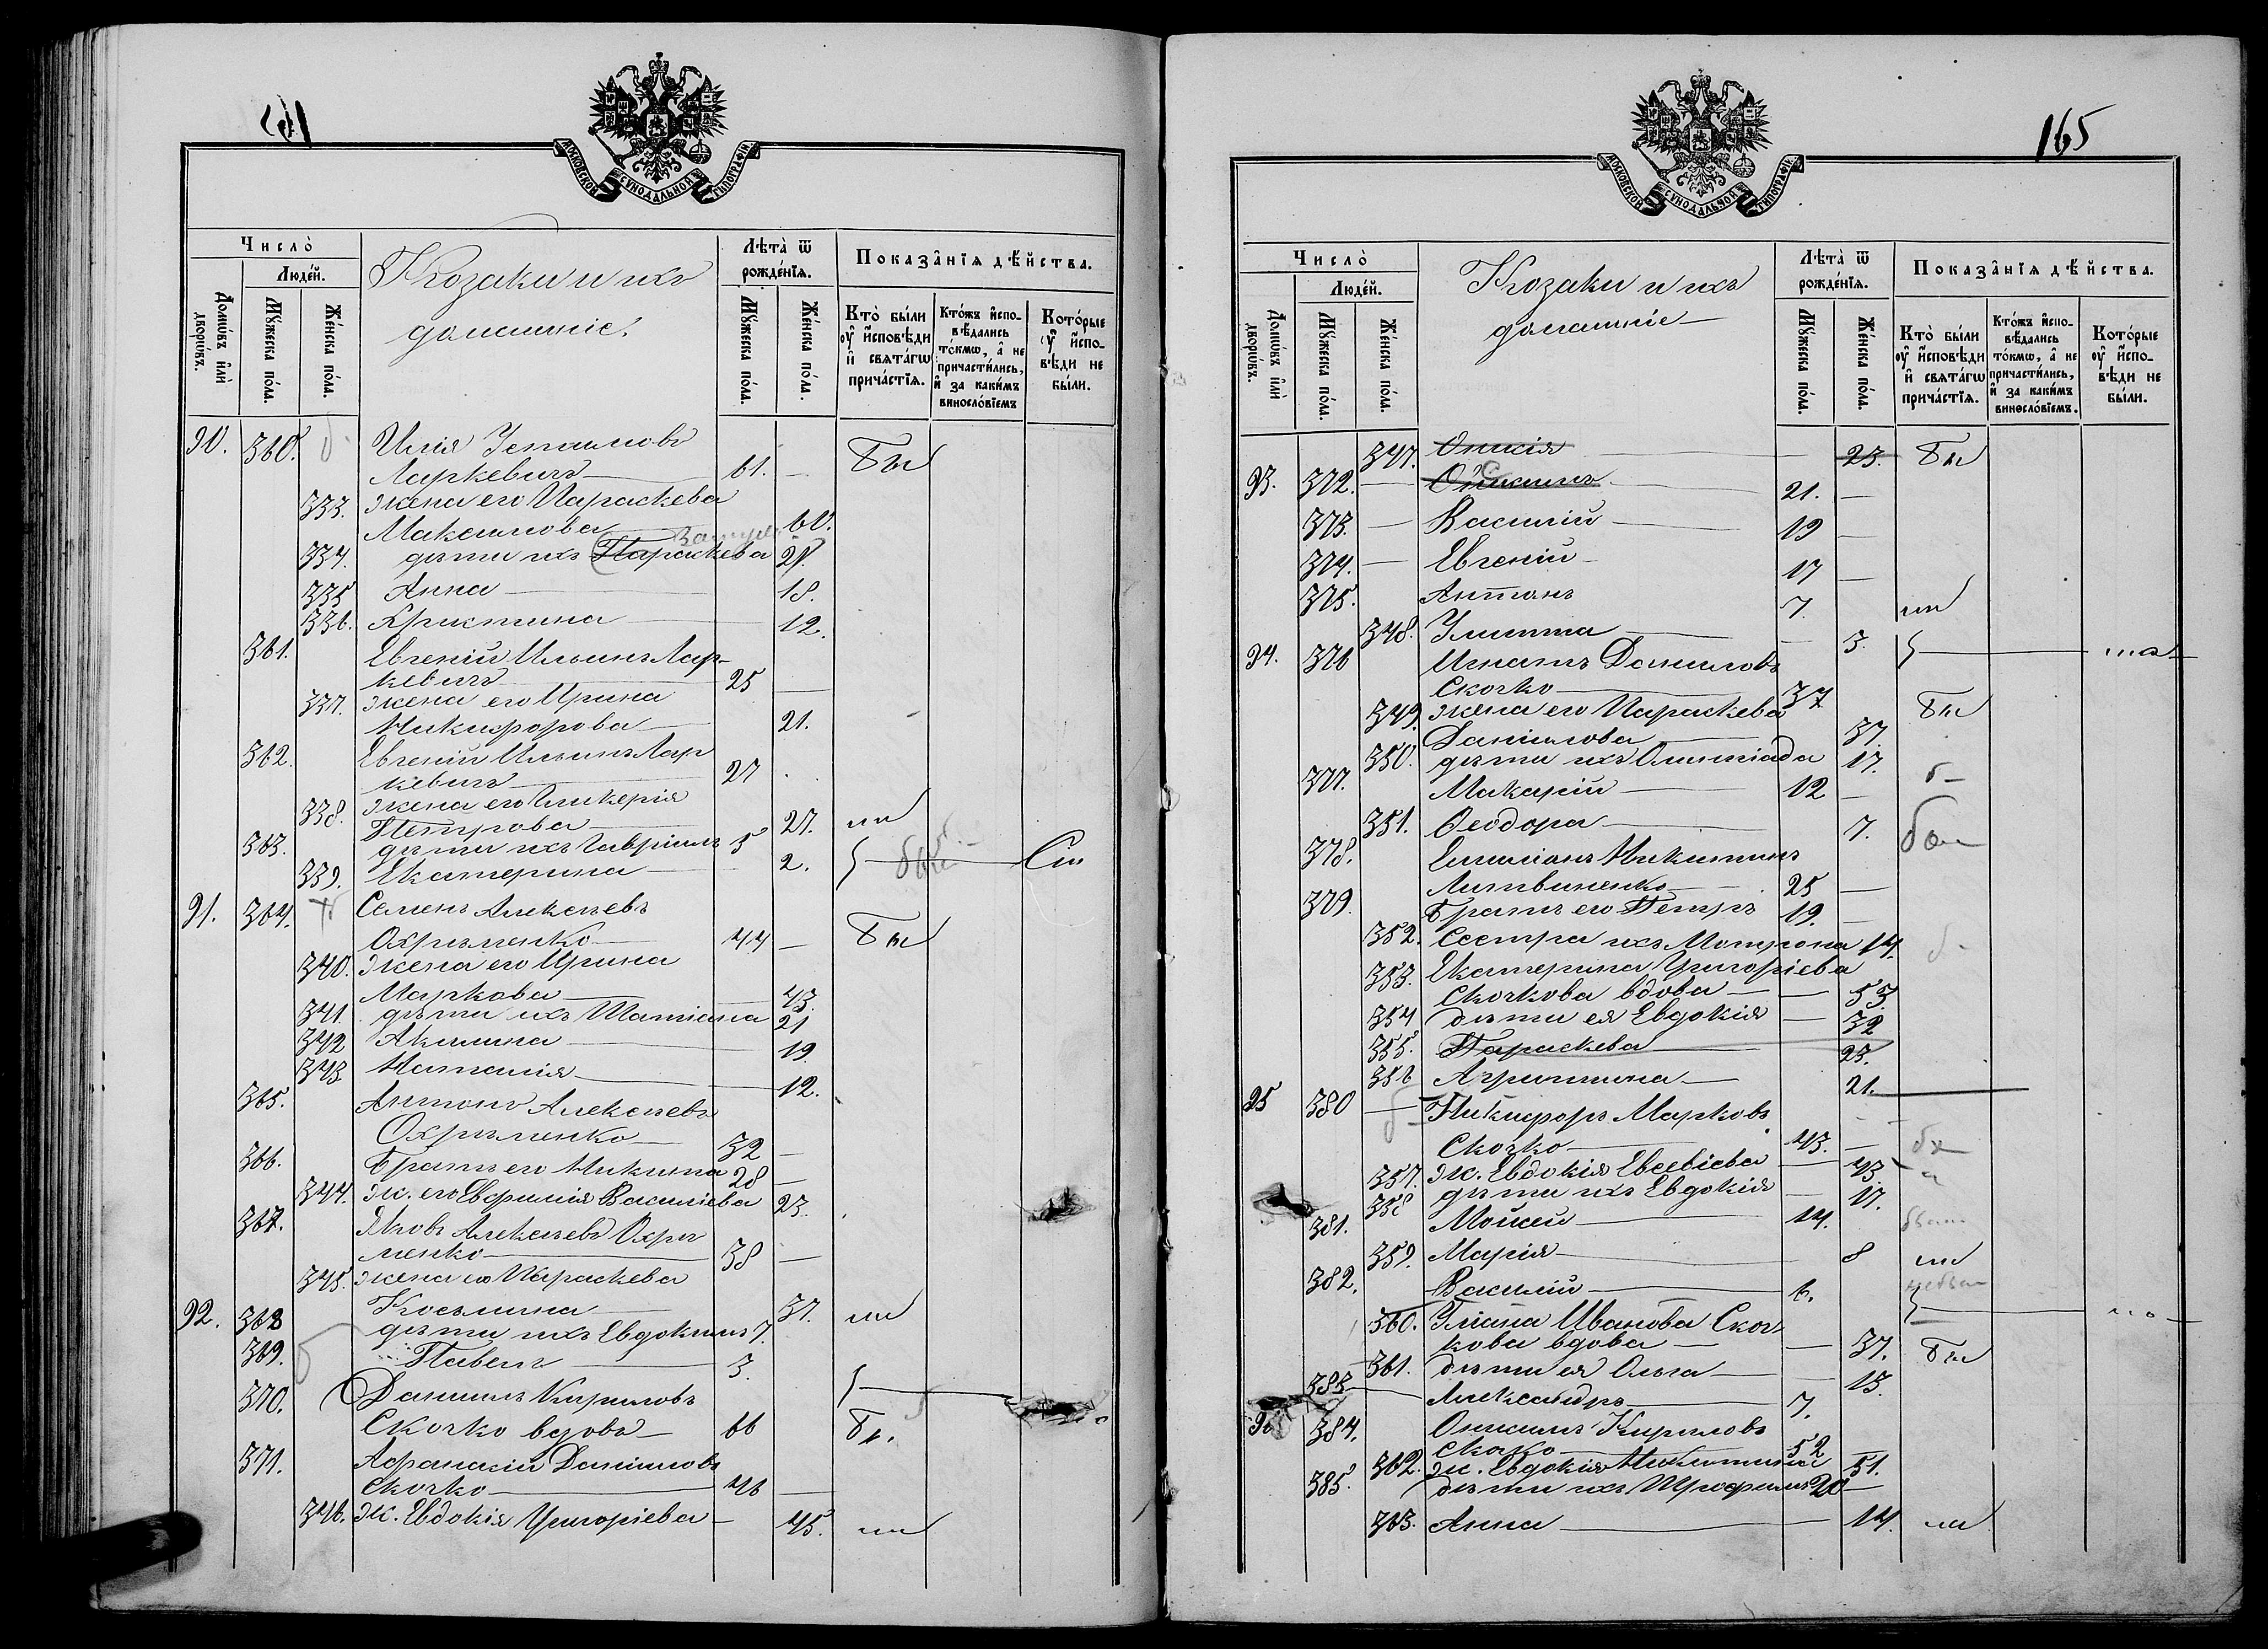 МОСКОВСКОЙ СѴНОДАЛЬНОЙ ТИПОГРАФІИ
Число̀
Люде́й.
Домѡ́въ и҆лѝ дворѡ́въ.
Мꙋ́жеска по́ла.
Же́нска по́ла.
Козаки и ихъ
домашніе.
Лѣта̀ ѿ рожде́нїѧ.
Мꙋ́жеска по́ла.
Же́нска по́ла.
Показа̑нїѧ дѣ́йства.
Кто̀ бы́ли ᲂу҆ и҆сповѣ́ди и҆ свѧта́гѡ прича́стїѧ.
Кто́жъ и҆спо-вѣ́дались то́кмѡ, а҆ не причасти́лись, и҆ за каки́мъ виносло́вїемъ
Кото́рые ᲂу҆ и҆спо-вѣ́ди не бы́ли.
90. 360. Илія
Ларкевичъ 61. — Бы
333. жена его Параскева
Максимова 60.
334. дѣти ихъ Параскева 21.
335 Анна 18.
336. Христина 12.
361. Евгеній Ильинъ Лар-
кевичъ 25 —
337. жена его Ирина
Никифорова 21.
362. Евгеній Ильинъ Лар
кевичъ 27
338. жена его Гликерія
Петрова 27. ли
363. дѣти ихъ Гавріилъ 5
339. Екатерина 2.
91. 364. Семенъ Алексѣевъ
Охрѣменко 44 — Бы
340. жена его Ирина
Маркова 43.
341. дѣти ихъ Татіана 21
342 Акилина 19
343 Наталія 12.
365. Антонъ Алексѣевъ
Охрѣменко 32 —
366. братъ его Никита 28 —
344. ж. его Евфимія Василіева 23.
367. Яковъ Алексѣевъ Охрѣ
менко 38 —
345. жена его Параскева
Косьмина 37. ли
92. 368 дѣти ихъ Евдокимъ 7.
369. Павелъ 3.
370. Даніилъ Кириловъ
Скочко вдовъ 66 Бы.
371. Афанасій Даніиловъ
Скочко 46 —
346. ж. Евдокія Григоріева — 45. ли
165
МОСКОВСКОЙ СѴНОДАЛЬНОЙ ТИПОГРАФІИ
Число̀
Люде́й.
Домѡ́въ и҆лѝ дворѡ́въ.
Мꙋ́жеска по́ла.
Же́нска по́ла.
Козаки и ихъ
домашніе
Лѣта̀ ѿ рожде́нїѧ.
Мꙋ́жеска по́ла.
Же́нска по́ла.
Показа̑нїѧ дѣ́йства.
Кто̀ бы́ли ᲂу҆ и҆сповѣ́ди и҆ свѧта́гѡ прича́стїѧ.
Кто́жъ и҆спо-вѣ́дались то́кмѡ, а҆ не причасти́лись, и҆ за каки́мъ виносло́вїемъ.
Кото́рые ᲂу҆ и҆спо-вѣ́ди не бы́ли.
347. — 23. Бы
93. 372. — 21. —
373. — Василій 19 —
374. — Евгеній 17 —
375. Антонъ 7. ли
348. Улитта — 3.
94. 376 Игнатъ Даниловъ
Скочко 37
349. жена его Параскева Бы
Даніилова 37.
350. дѣти ихъ Олимпіада 17.
377. Макарій 12 —
351. Ѳеодора 7.
378. Емиліанъ Никитинъ
Литвиненко 25 —
379. братъ его Петръ 19. —
352. Сестра ихъ Мотрона 14.
353. Екатерина Григоріева
Скочкова вдова — 53
354 дѣти ея Евдокія — 32
355. Параскева 23.
356 Агрипина 21.
95 380 — Никифоръ Марковъ
Скочко 43. —
357. ж. Евдокія Евсевіева — 43.
358 дѣти ихъ Евдокія — 17.
381. Мойсей 14.
359. Марія 8 ли
382. Василій 6.
360. Уліана Иванова Скоч
кова вдова — — 37. Бы
361. дѣти ея Ольга — 13.
383 Александръ 7.
96 384. Онисимъ Кириловъ
Скочко 52 —
362. ж. Евдокія Никитина 51.
385. дѣти ихъ Трофимъ 20 —
363. Анна — 14. ли